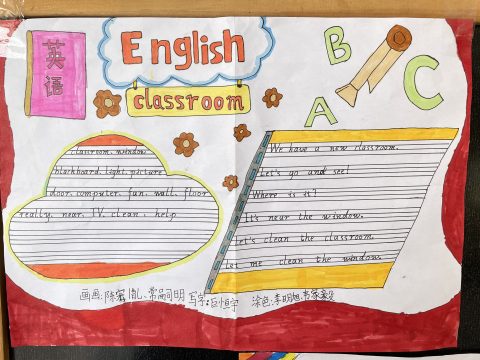 英语
English
classroom
B
A
C
classroom, window,
blackboard, light, picture
door, computer, fan, wall, floor
really, near, TV, clean, help
We have a new classroom.
Let's go and see!
Where is it?
It's near the window.
Let's clean the classroom.
Let me clean the windows.
画画: 写字: 巨恒宇 涂色: 李明旭